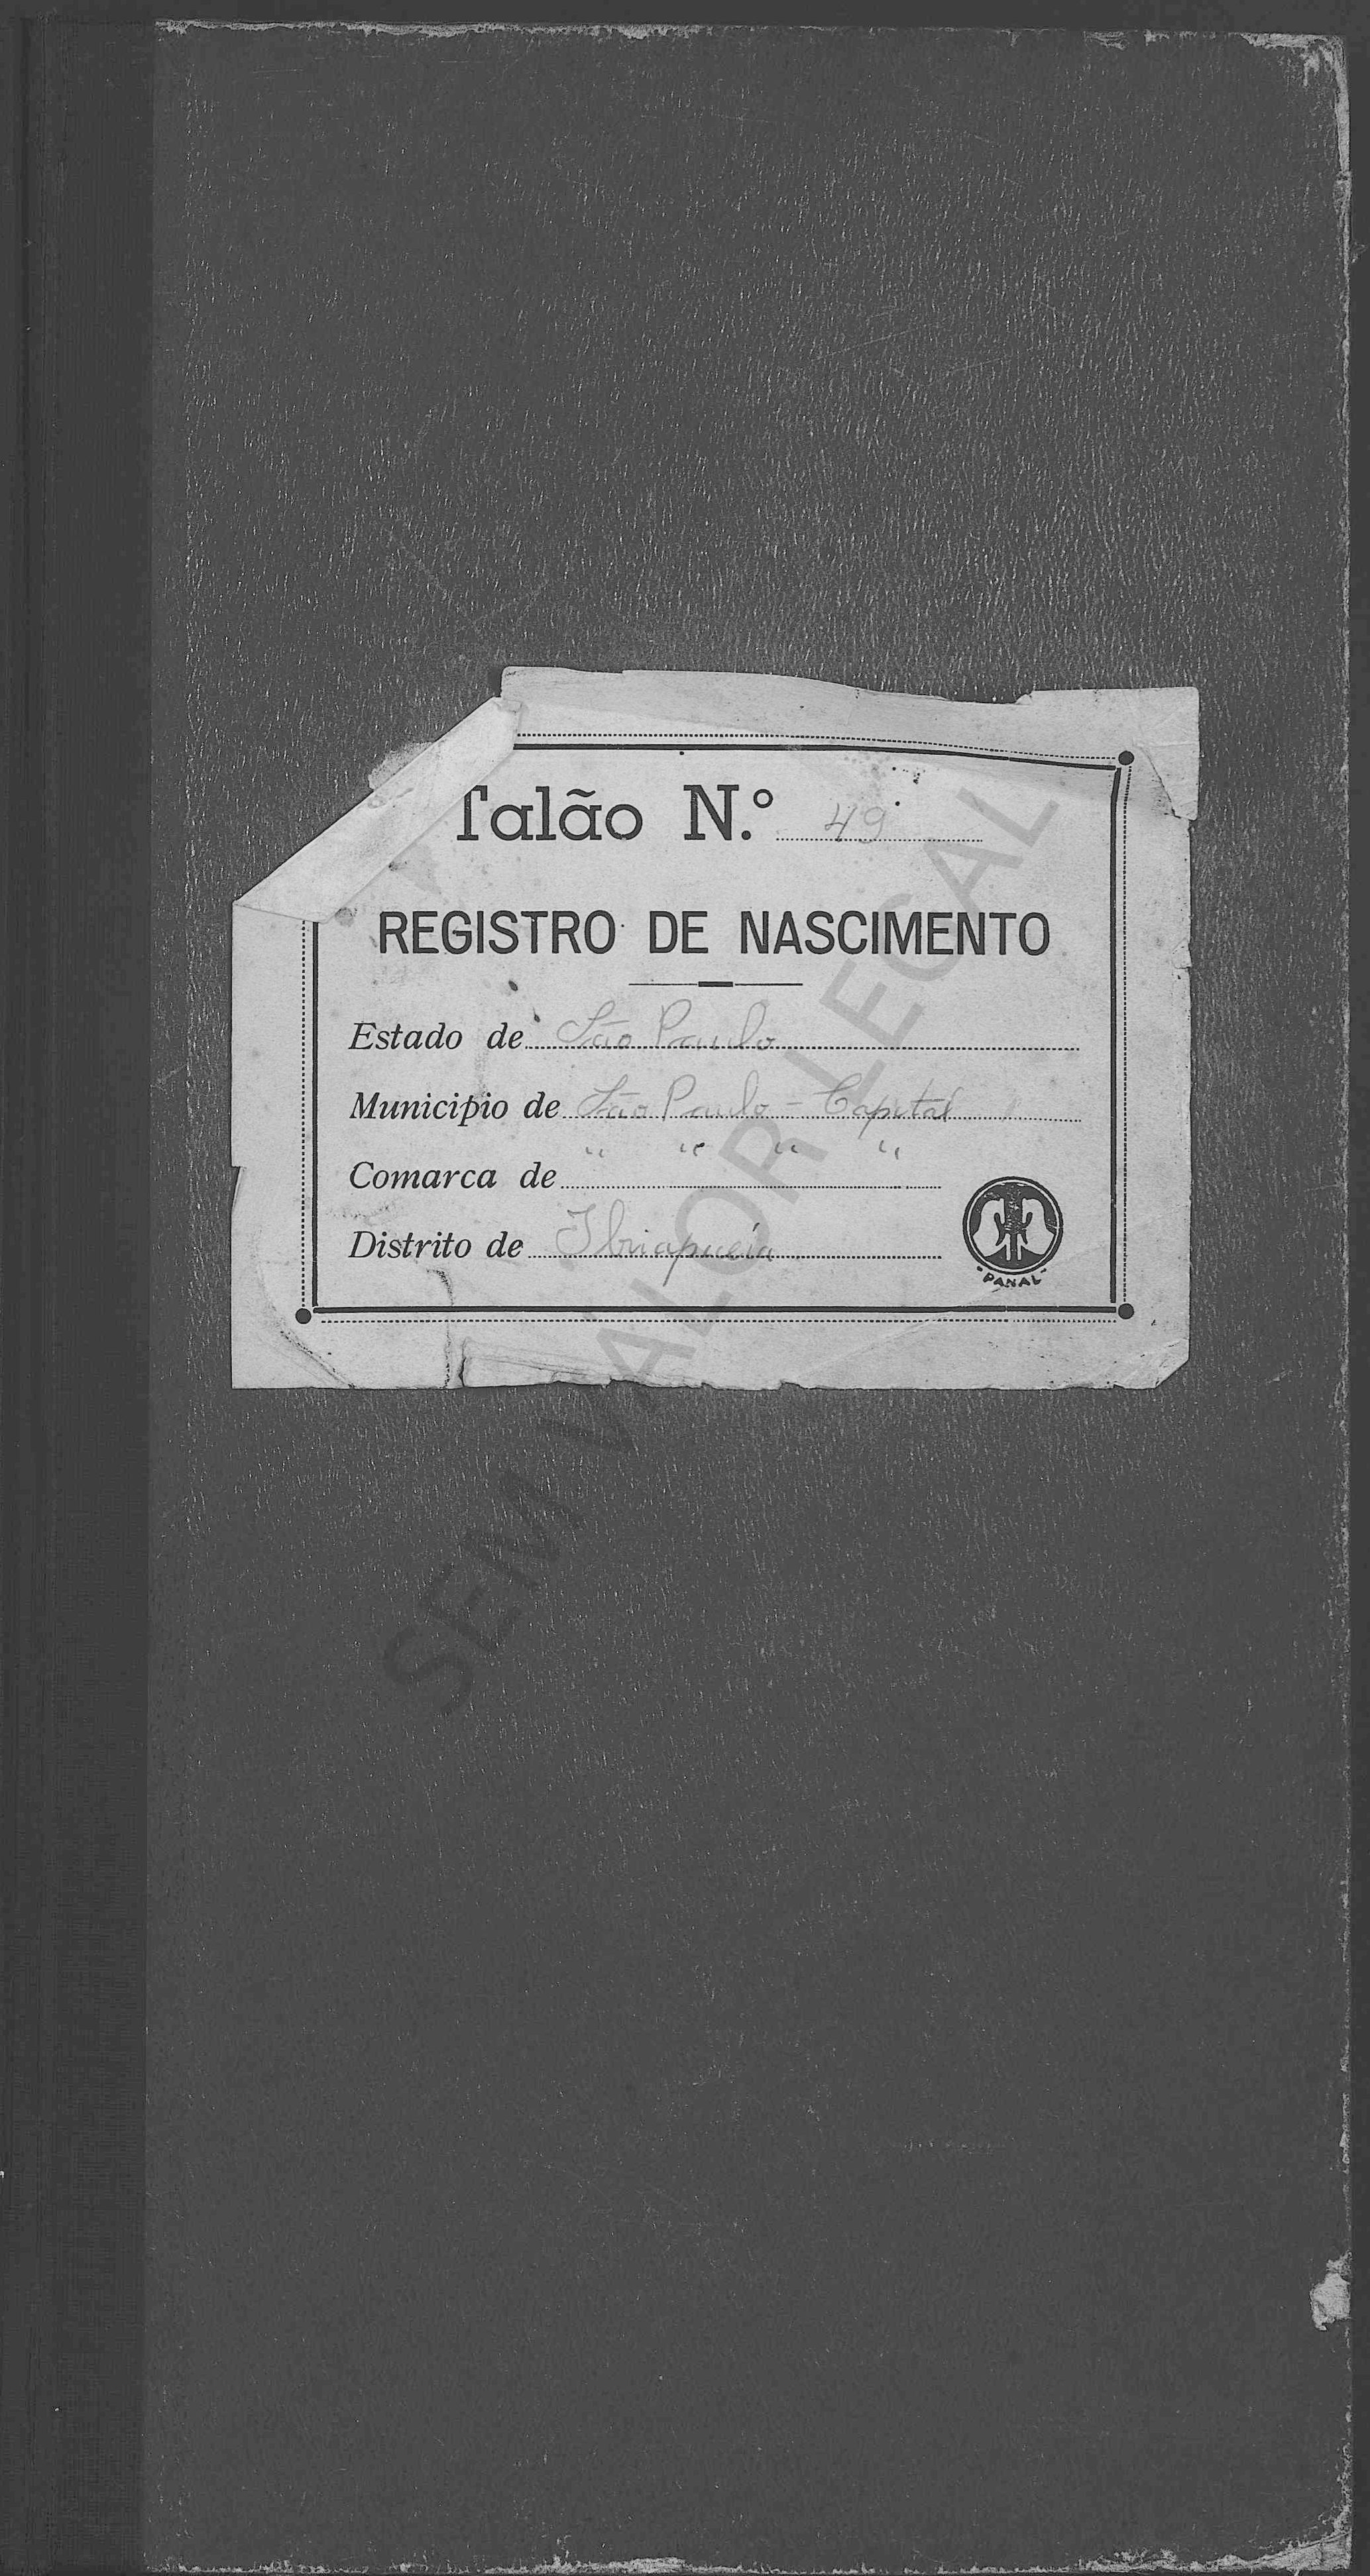 Talão N.º 49
REGISTRO DE NASCIMENTO
Estado de São Paulo
Municipio de São Paulo - Capital
" " " "
Comarca de
Distrito de Ibirapuera
PANAL
SEM VALOR LEGAL